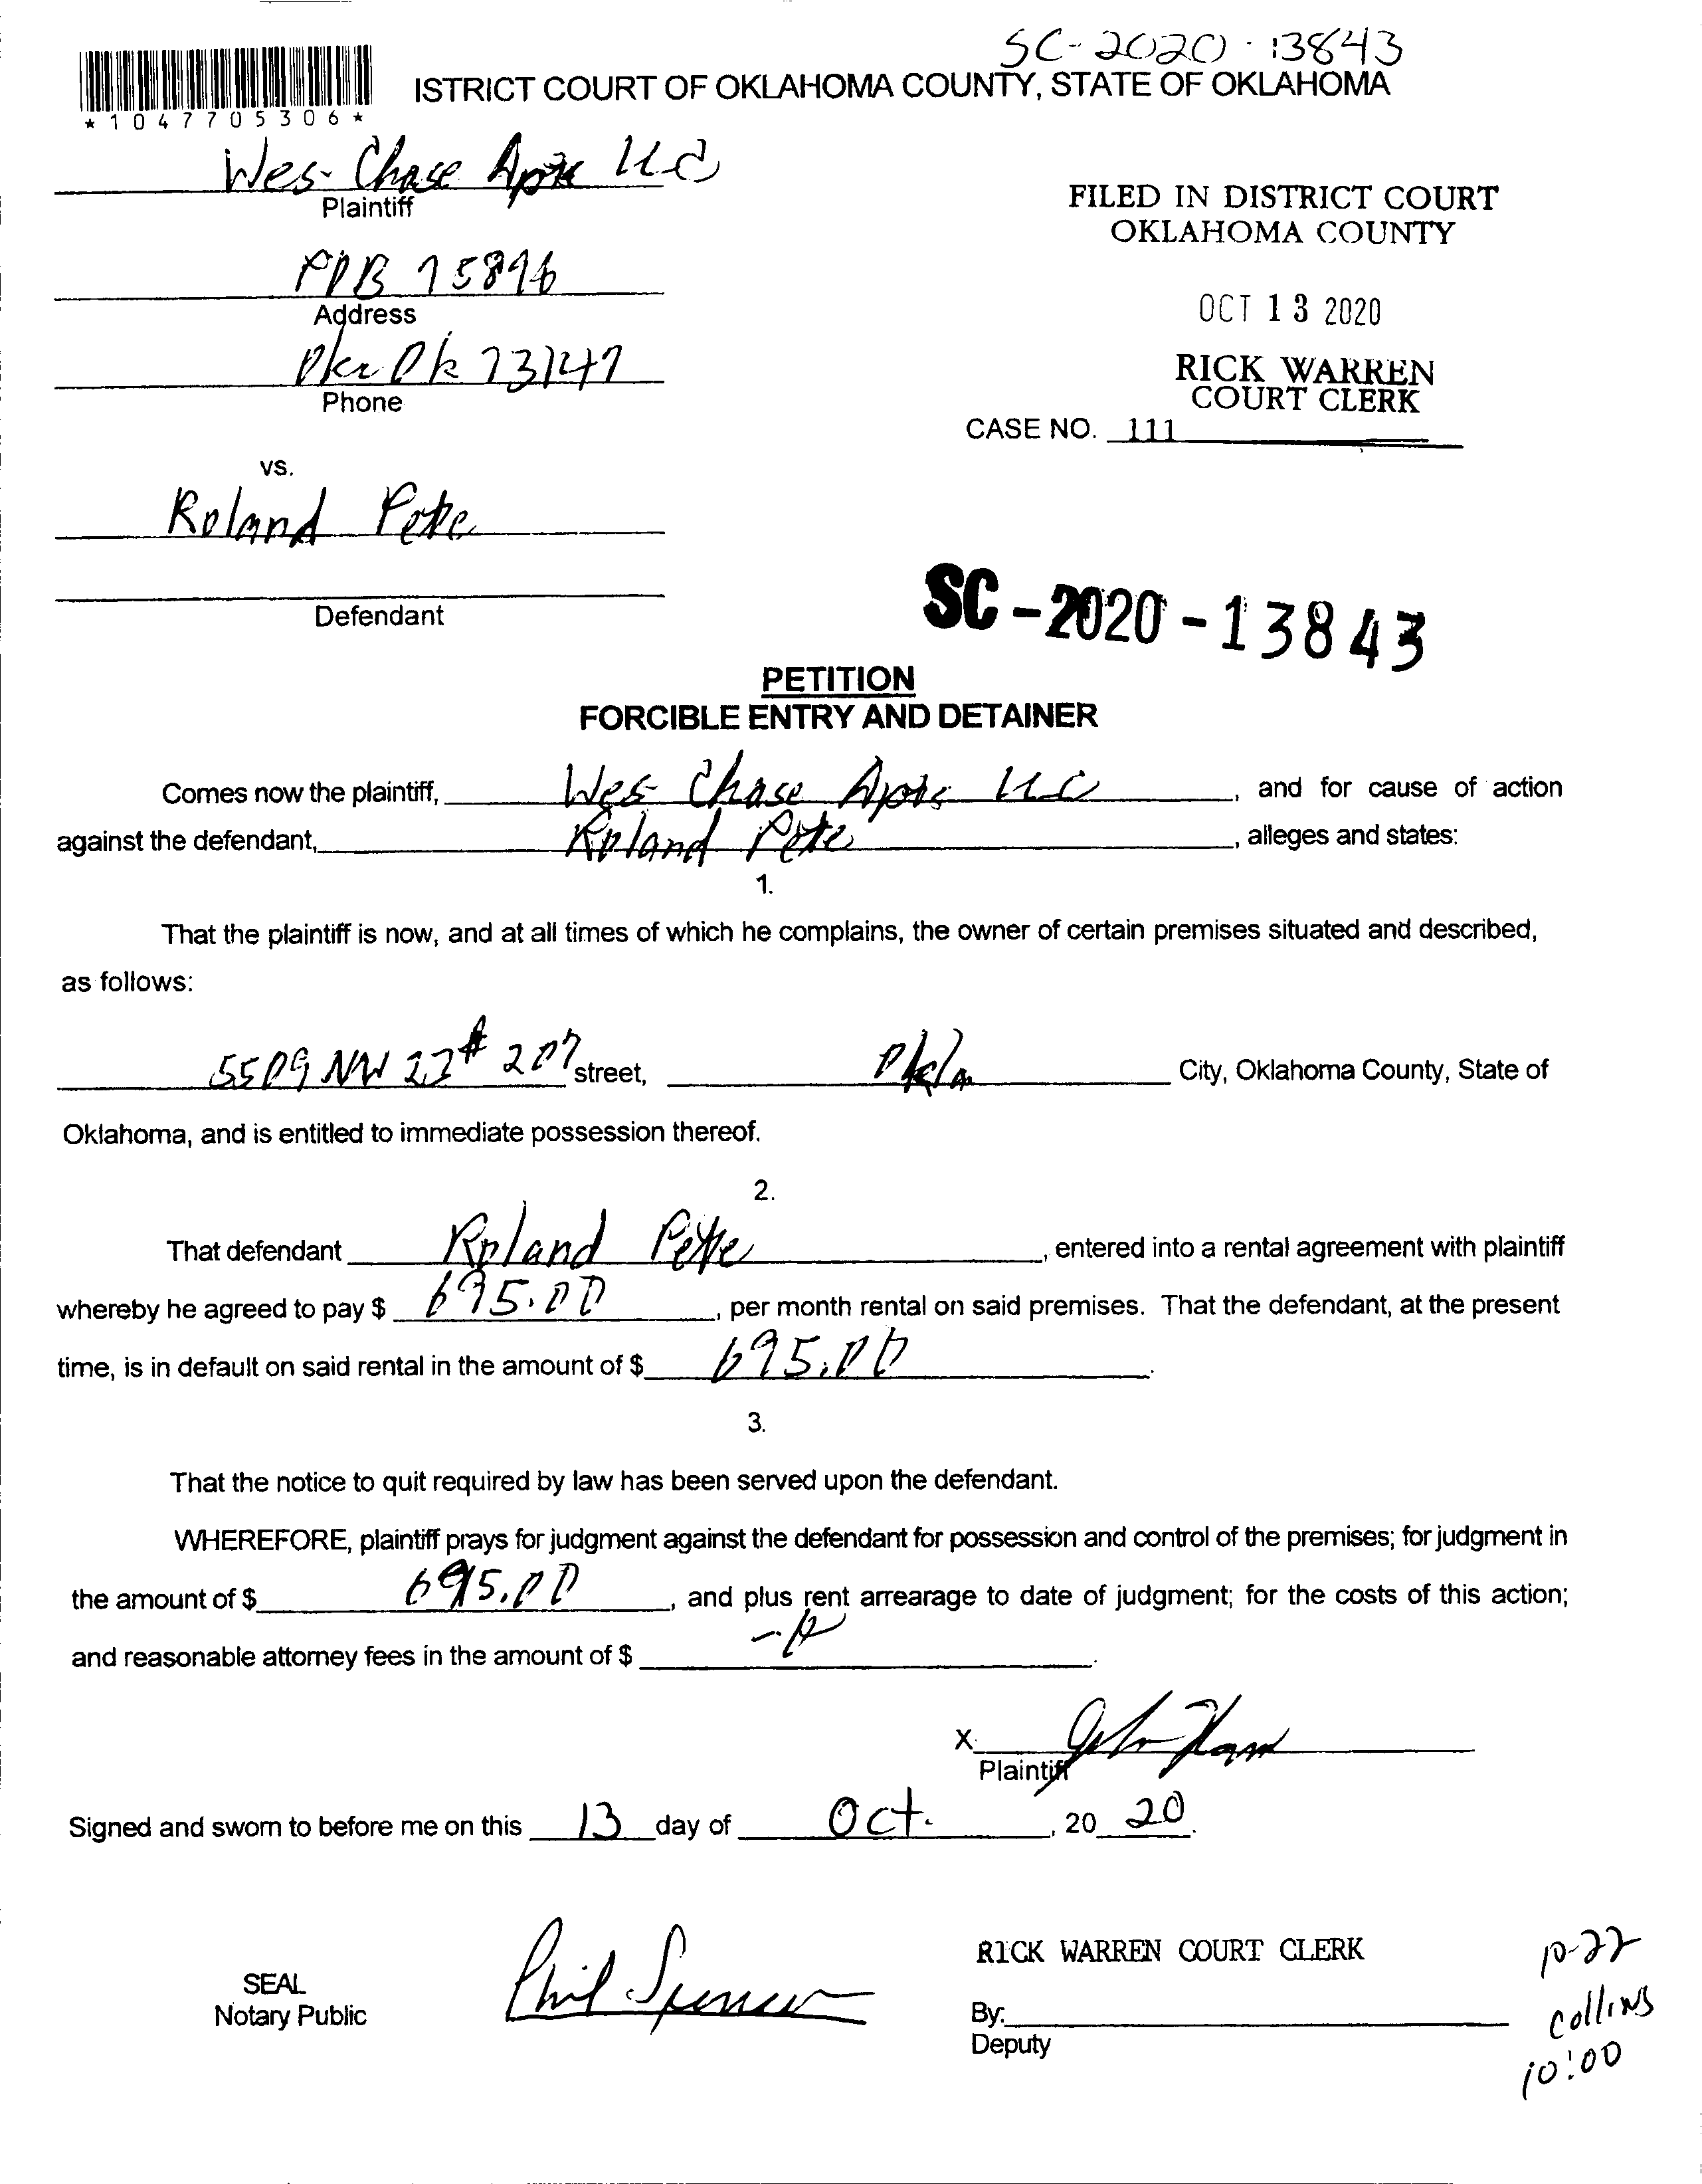 SC-2020-13843
*1047705306*
ISTRICT COURT OF OKLAHOMA COUNTY, STATE OF OKLAHOMA
Wes-Chase Apts LLC
Plaintiff
FILED IN DISTRICT COURT
OKLAHOMA COUNTY
POB 75896
Address
OCT 13 2020
Ok 73147
Phone
RICK WARREN
COURT CLERK
CASE NO. 111
vs.
Roland Pete
Defendant
SC-2020-13843
PETITION
FORCIBLE ENTRY AND DETAINER
Comes now the plaintiff, Wes Chase Apts LLC, and for cause of action
against the defendant, Roland Pete, alleges and states:
1.
That the plaintiff is now, and at all times of which he complains, the owner of certain premises situated and described,
as follows:
5509 NW 23 # 207 street, Okla City, Oklahoma County, State of
Oklahoma, and is entitled to immediate possession thereof.
2.
That defendant Roland Pete, entered into a rental agreement with plaintiff
whereby he agreed to pay $ 695.00, per month rental on said premises. That the defendant, at the present
time, is in default on said rental in the amount of $ 695.00.
3.
That the notice to quit required by law has been served upon the defendant.
WHEREFORE, plaintiff prays for judgment against the defendant for possession and control of the premises; for judgment in
the amount of $ 695.00, and plus rent arrearage to date of judgment; for the costs of this action;
and reasonable attorney fees in the amount of $
X
Plaintiff
Signed and sworn to before me on this 13 day of Oct., 20 20.
RICK WARREN COURT CLERK
10-22
SEAL
Notary Public
Phil Spencer
By:
Deputy
Collins
10:00